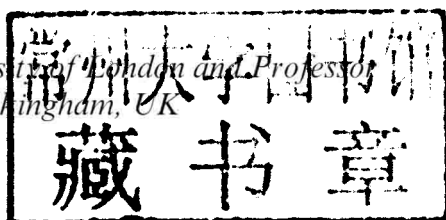 常州大学图书馆
sity of London and Professor
kingham, UK
藏书章